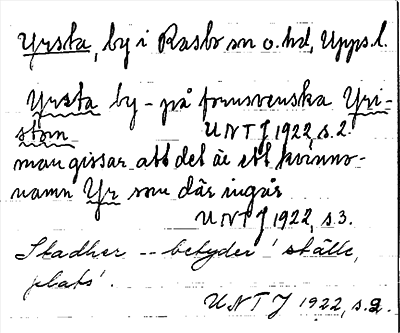 Yrsta, by i Rasbo sn o. hd, Upps. l.
Yrsta by - på fornsvenska Yri-
stom UNTJ 1922, s. 2.
man gissar att det är ett kvinno-
namn Yr som där ingår
UNTJ 1922, s. 3.
Stadher -- betyder 'ställe,
plats'.
UNTJ 1922, s. 2.